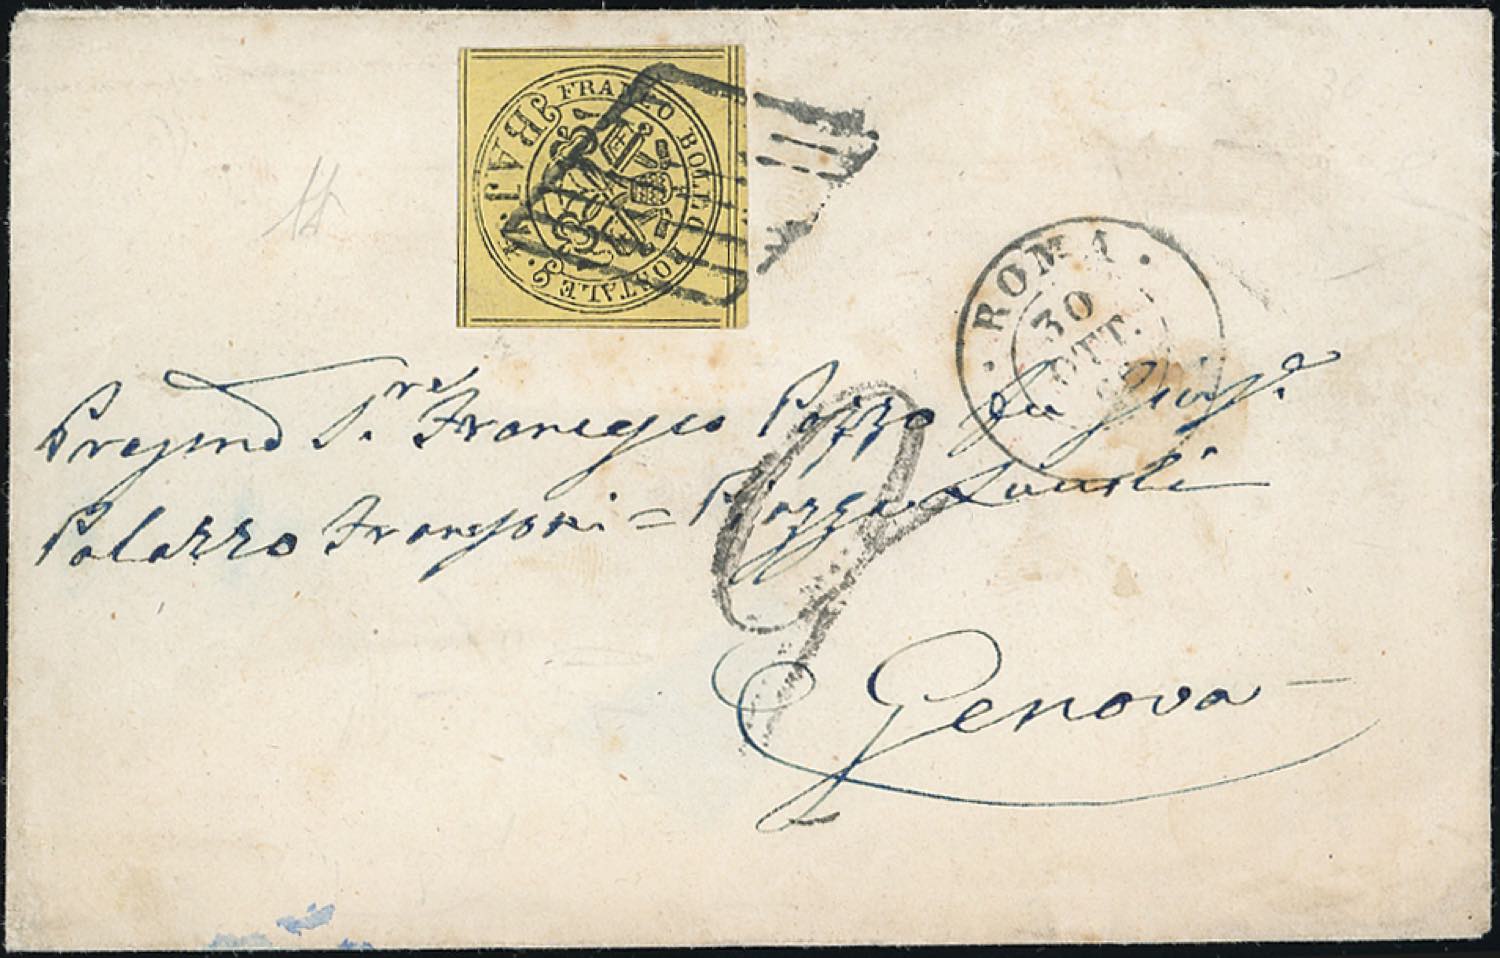 FRANCO BOLLO POSTALE
BAJ.
ROMA
30
OTT.
Pregmo Sr. Francesco Pozzo fu Gius.e
Palazzo Fransoni = Piazza
9
Genova